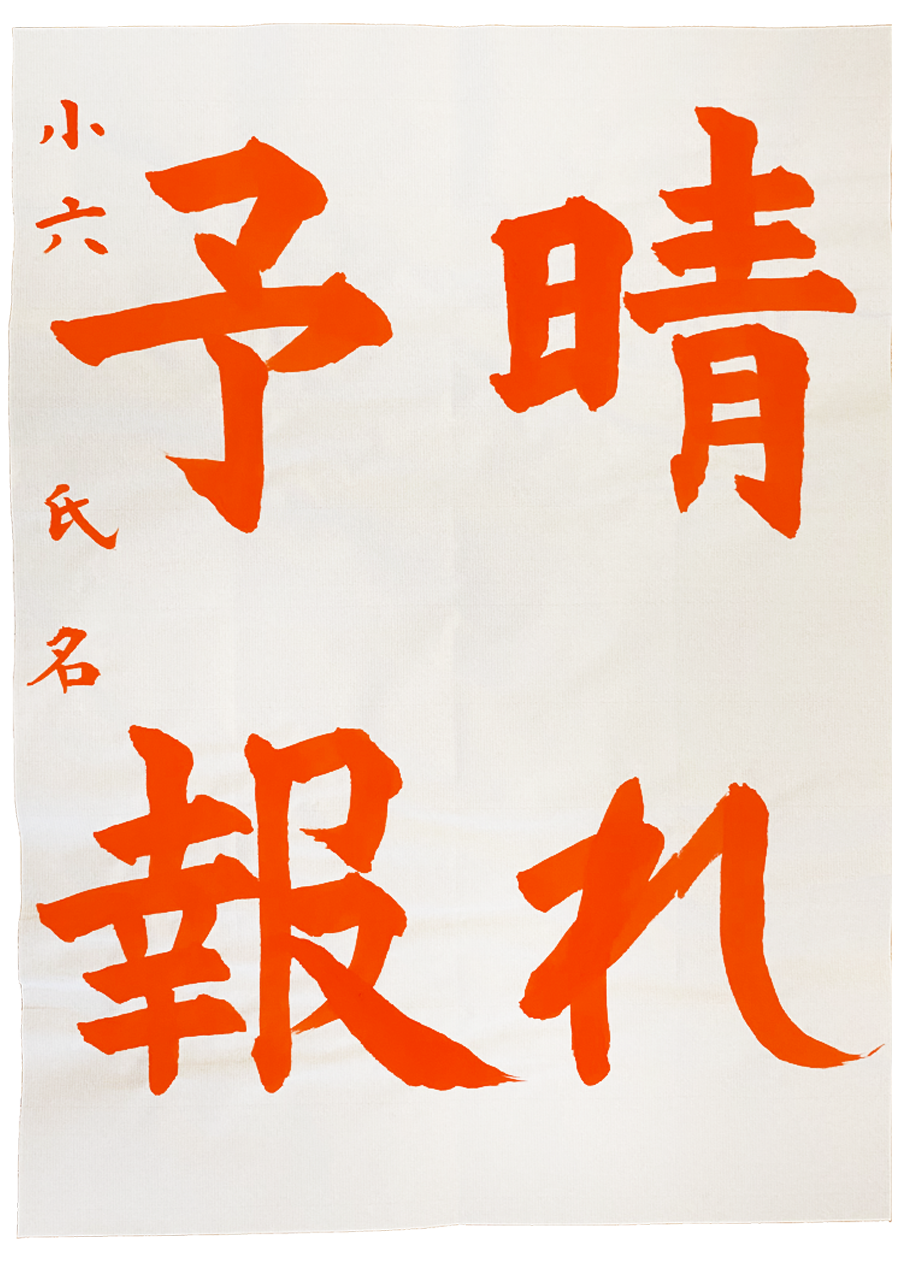 晴れ
予報
小六 氏名